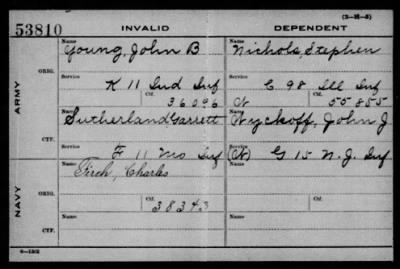 (3-H-8)
53810 INVALID DEPENDENT
Name Name
Young, John B Nichols, Stephen
ARMY
ORIG.
Service Service
K 11 Ind Inf E 98 Ill Inf
Ctf. Ctf.
36096 N 55855
Name Name
Sutherland Garrett Wyckoff, John J
CTF.
Service Service
F 11 Mo Inf (N) G 15 N.J. Inf
Name Name
Charles
NAVY
ORIG.
Ctf. Ctf.
38343
Name Name
CTF.